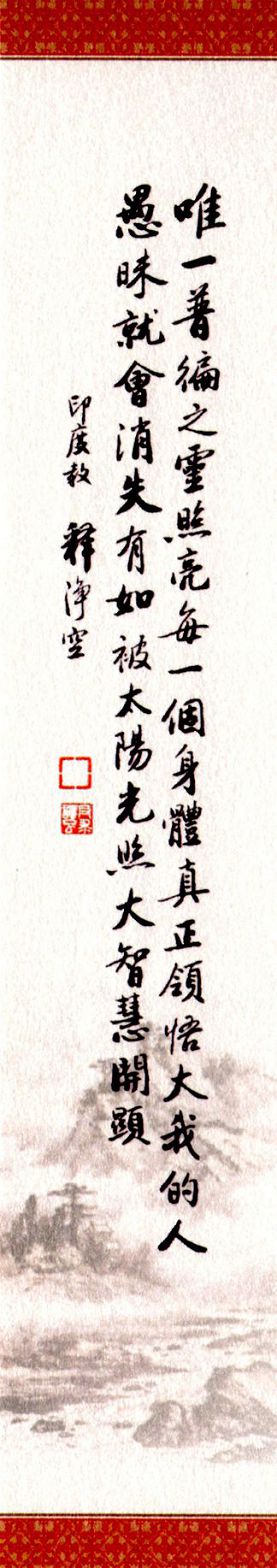 唯一普徧之靈照亮每一個身體真正領悟大我的人
愚昧就會消失有如被太陽光照大智慧開顯
印度教 釋淨空